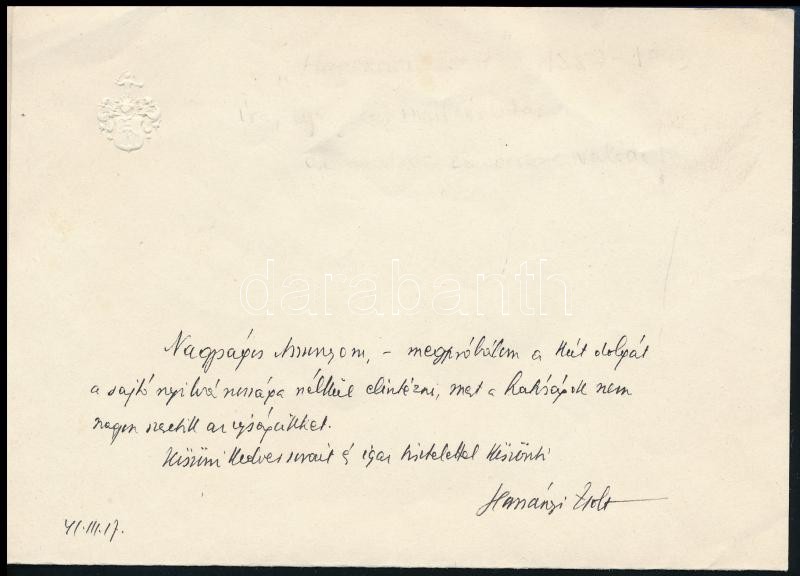 Nagyságos Asszonyom, – megpróbálom a Kút dolgát
a sajtó nyilvánossága nélkül elintézni, mert a hatóságok nem
nagyon szeretik az ujságcikket.
Köszöni kedves sorait és igaz tisztelettel köszönti
Harsányi Zsolt
41.III.17.
darabanth